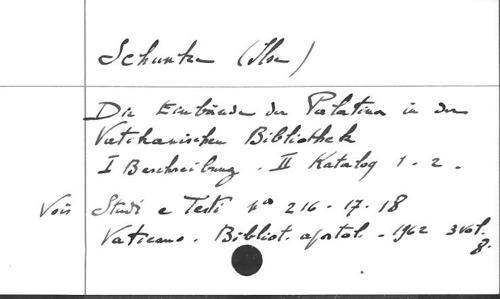 Schunke (Ilse)
Die Einbände der Palatina in der
Vatikanischen Bibliothek
I Beschreibung. II Katalog 1-2.
Voir Studi e Testi nos 216-17-18
Vaticano. Bibliot. apostol. - 1962 3 vol.
8.